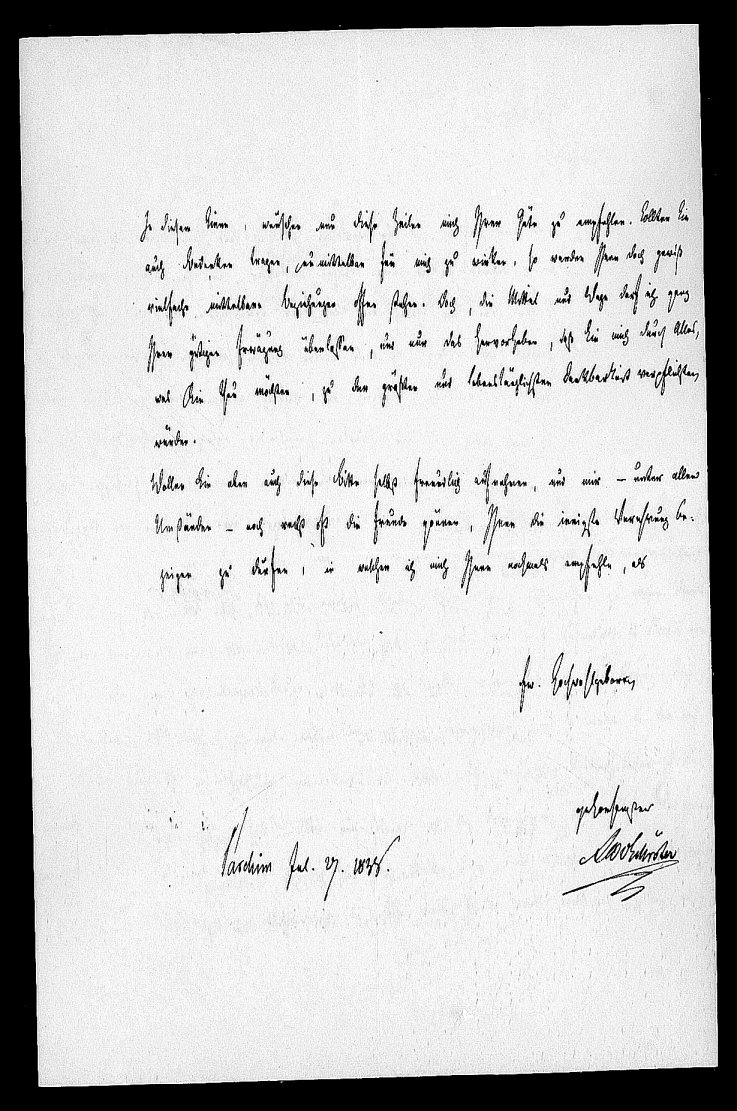 In diesem Sinne, wünschen nun diese Zeilen mich Ihrer Güte zu empfehlen. Sollten Sie
auch Bedenken tragen, unmittelbar für mich zu wirken, so werden Ihnen doch gewiß
vielfache mittelbare Beziehungen offen stehen. Doch, die Mittel und Wege darf ich ganz
Ihrer gütigen Erwägung überlassen, und nur das hervorheben, daß Sie mich durch Alles,
was Sie thun möchten, zu der größten und lebenslänglichsten Dankbarkeit verpflichten
würden.
Wollen Sie aber auch diese Bitte selbst freundlich aufnehmen, und mir — unter allen
Umständen — noch recht oft die Freude gönnen, Ihnen die innigste Verehrung be-
zeigen zu dürfen, in welcher ich mich Ihnen nochmals empfehle, als
Ew. Hochwohlgeboren
gehorsamster
Parchim Jul. 27. 1838.